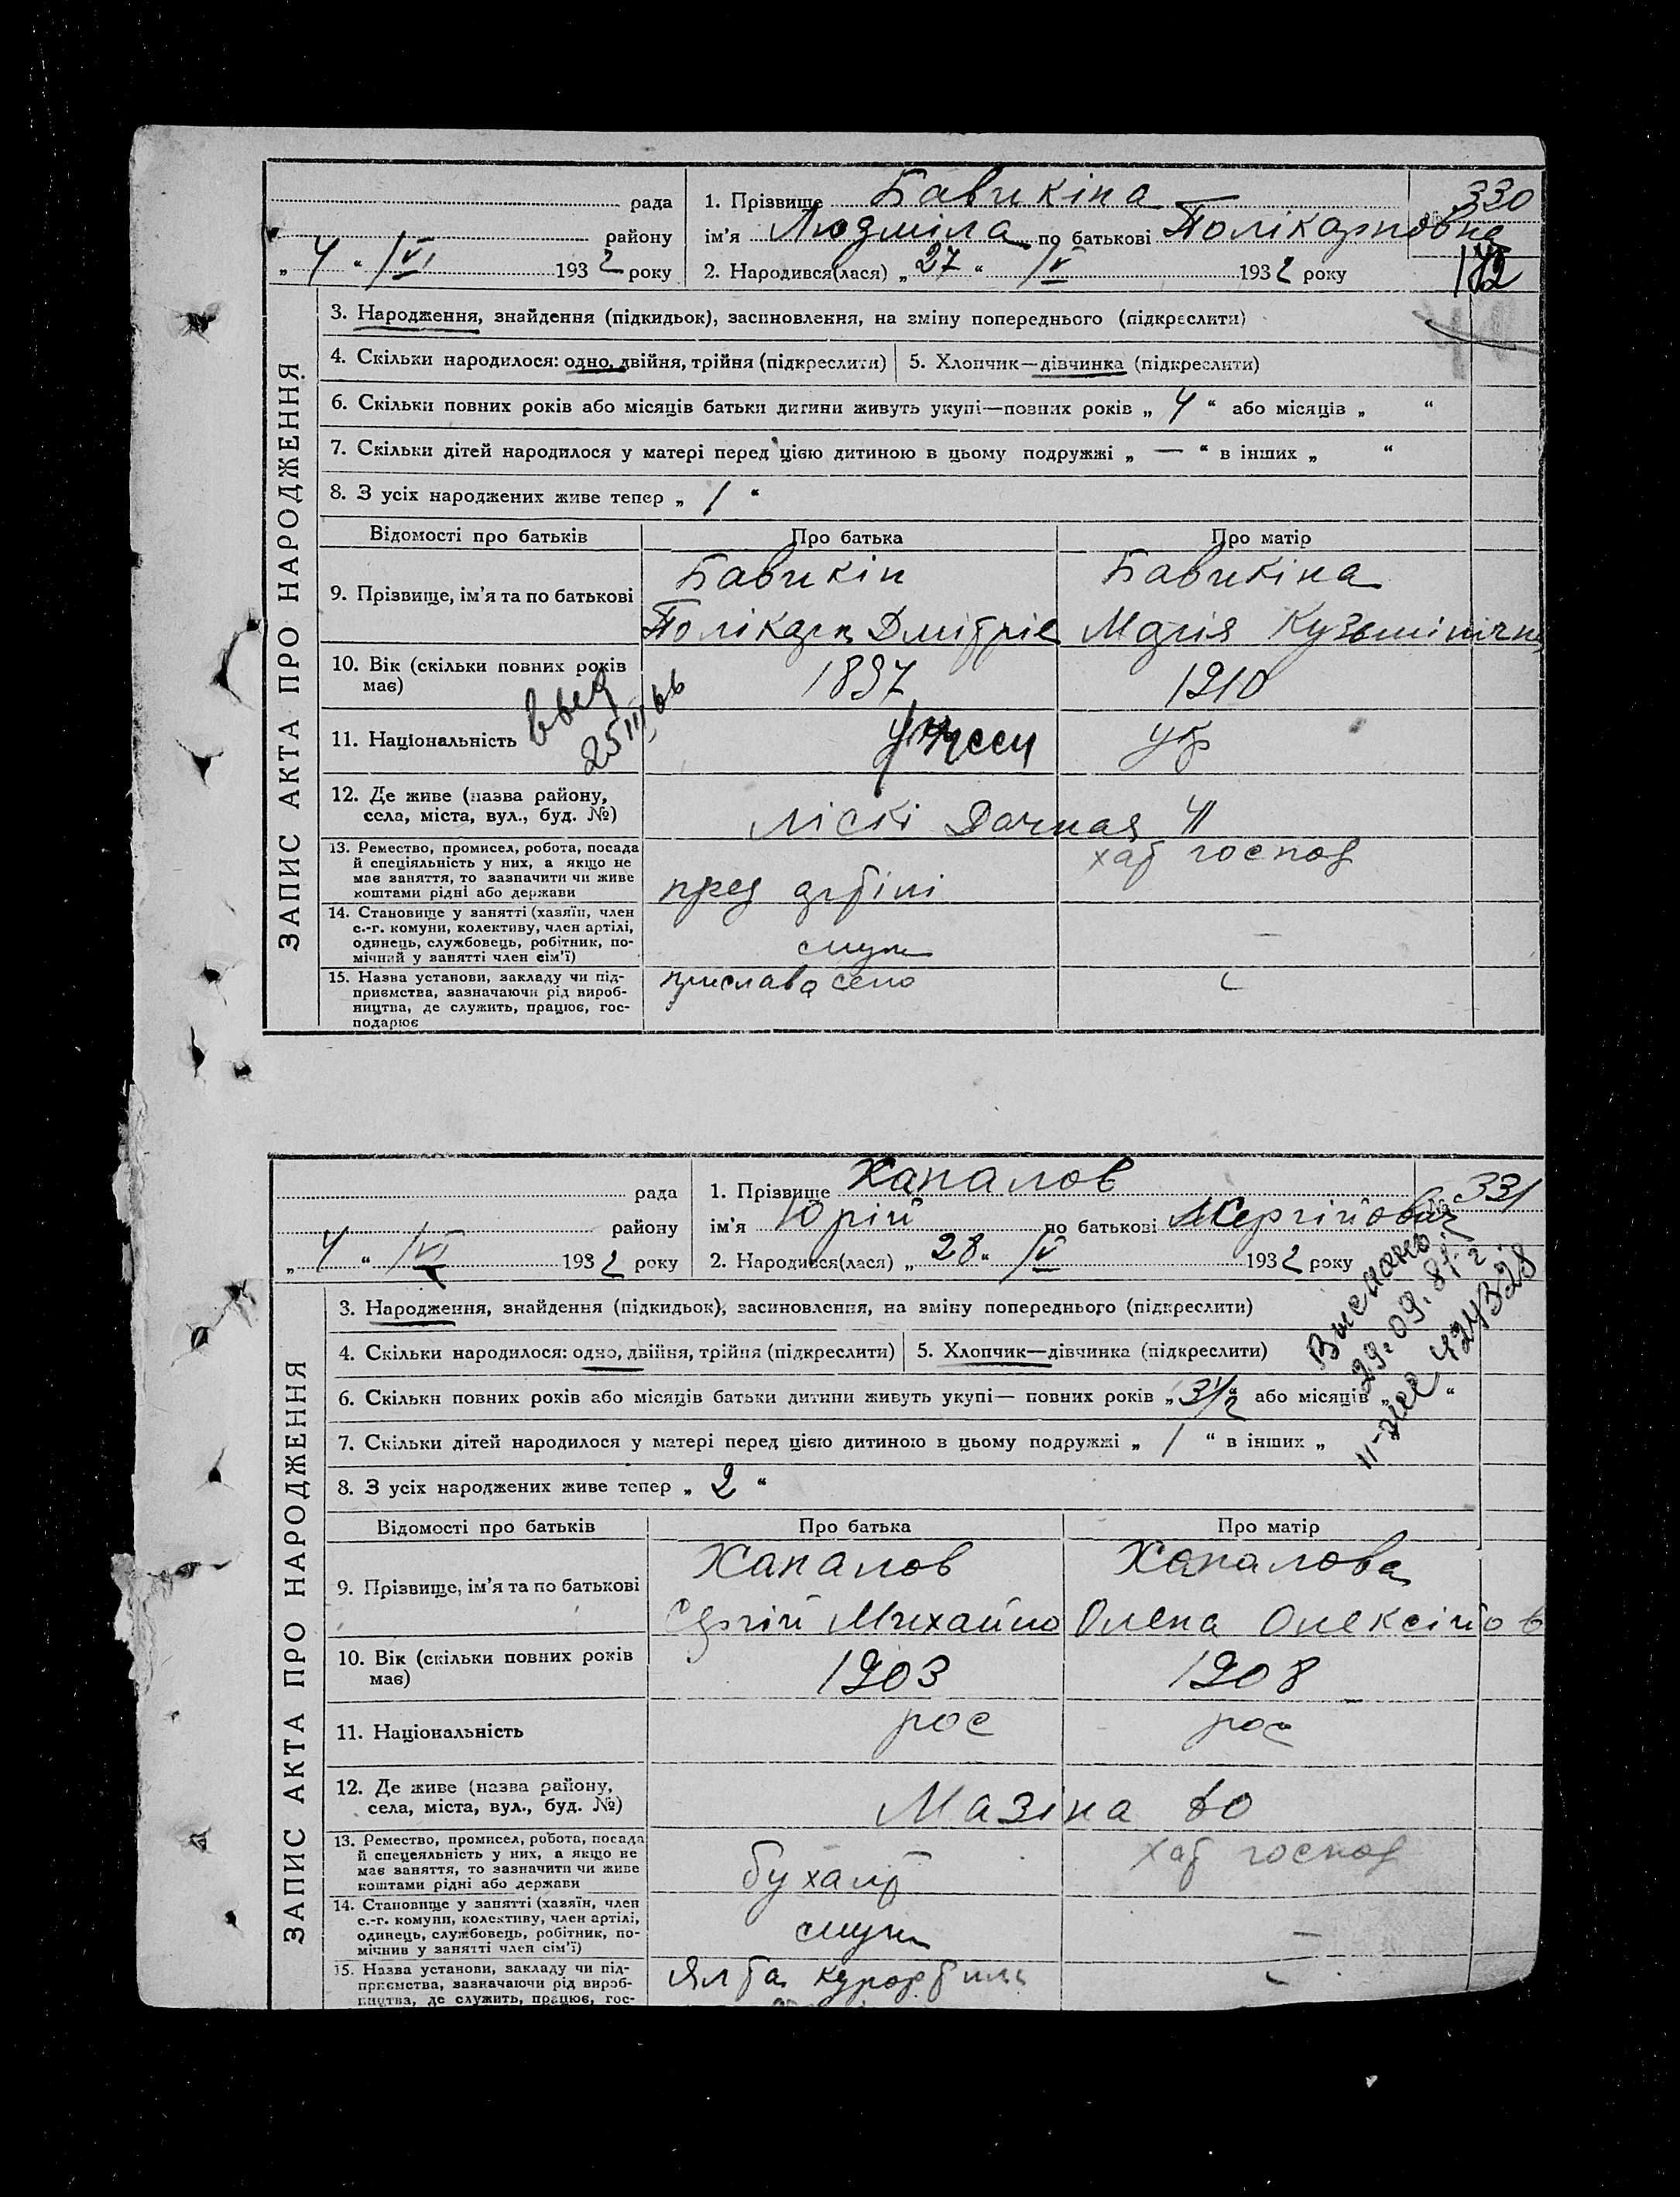 рада
1. Прізвище Бавикіна 330
району
ім'я Людміла по батькові Полікарповна
„ 4 “ VI 1932 року
2. Народився(лася) „ 27 “ IV 1932 року
172
3. Народження, знайдення (підкидьок), засиновлення, на зміну попереднього (підкреслити)
4. Скільки народилося: одно, двійня, трійня (підкреслити) 5. Хлопчик—дівчинка (підкреслити)
6. Скільки повних років або місяців батьки дитини живуть укупі—повних років „ 4 “ або місяців „ “
7. Скільки дітей народилося у матері перед цією дитиною в цьому подружжі „ — “ в інших „ “
8. З усіх народжених живе тепер „ 1 “
ЗАПИС АКТА ПРО НАРОДЖЕННЯ
Відомості про батьків Про батька Про матір
9. Прізвище, ім'я та по батькові
Бавикін
Полікарп Дмітріє
Бавикіна
Марія Кузьмінічн
10. Вік (скільки повних років
має)
1897 1910
11. Національність
25 III 66
укр
12. Де живе (назва району,
села, міста, вул., буд. №)
Ліскі Дачная 4
13. Ремество, промисел, робота, посада
й спеціяльність у них, а якщо не
має заняття, то зазначити чи живе
коштами рідні або держави
пред артілі
хат господ
14. Становище у занятті (хазяїн, член
с.-г. комуни, колективу, член артілі,
одинець, службовець, робітник, по-
мічний у занятті член сім'ї)
служ —
15. Назва установи, закладу чи під-
приємства, зазначаючи рід вироб-
ництва, де служить, працює, гос-
подарює
село
рада
1. Прізвище Хапалов 331
району
ім'я Юрій по батькові Сергійович
„ 4 “ VI 1932 року
2. Народився(лася) „ 28 “ IV 1932 року
29.09.81
424328
3. Народження, знайдення (підкидьок), засиновлення, на зміну попереднього (підкреслити)
4. Скільки народилося: одно, двійня, трійня (підкреслити) 5. Хлопчик—дівчинка (підкреслити)
6. Скільки повних років або місяців батьки дитини живуть укупі— повних років „ 3 1/2 “ або місяців „ “
7. Скільки дітей народилося у матері перед цією дитиною в цьому подружжі „ 1 “ в інших „
8. З усіх народжених живе тепер „ 2 “
ЗАПИС АКТА ПРО НАРОДЖЕННЯ
Відомості про батьків Про батька Про матір
9. Прізвище, ім'я та по батькові
Хапалов
Сергій Михайло
Хапалова
Олена Олексійов
10. Вік (скільки повних років
має)
1903 1908
11. Національність
рос рос
12. Де живе (назва району,
села, міста, вул., буд. №)
Мазіна 60
13. Ремество, промисел, робота, посада
й спецеяльність у них, а якщо не
має заняття, то зазначити чи живе
коштами рідні або держави
бухалт
хат господ
14. Становище у занятті (хазяїн, член
с.-г. комуни, колективу, член артілі,
одинець, службовець, робітник, по-
мічнив у занятті член сім'ї)
служ —
15. Назва установи, закладу чи під-
приємства, зазначаючи рід вироб-
ництва, де служить, працює, гос-
Ялта